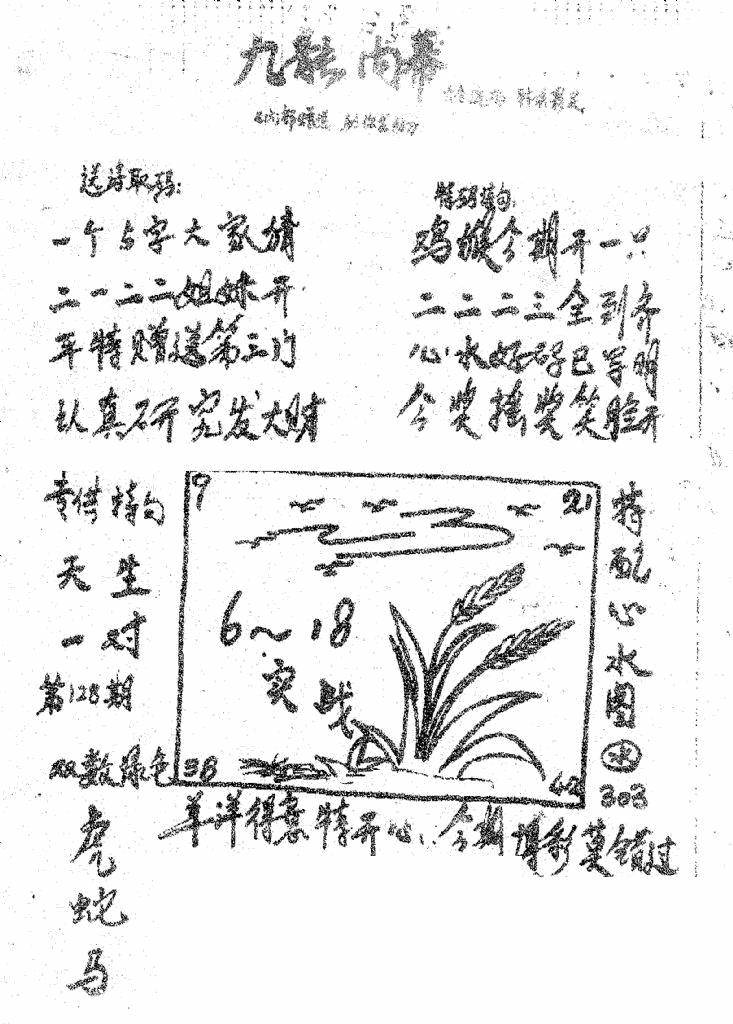 九龙内幕
送诗取码:
特码诗句:
一个与字大家猜
二一二二姐妹开
平特赠送第三门
认真研究发大财
鸡猴今期开一只
二二二三全到齐
心水好码已写明
今奖摇奖笑脸开
专供特句
天生
一对
第128期
双数绿色
虎
蛇
马
9
21
6~18
实战
38
42
特配心水图
水
303
羊洋得意特开心、今期博彩莫错过